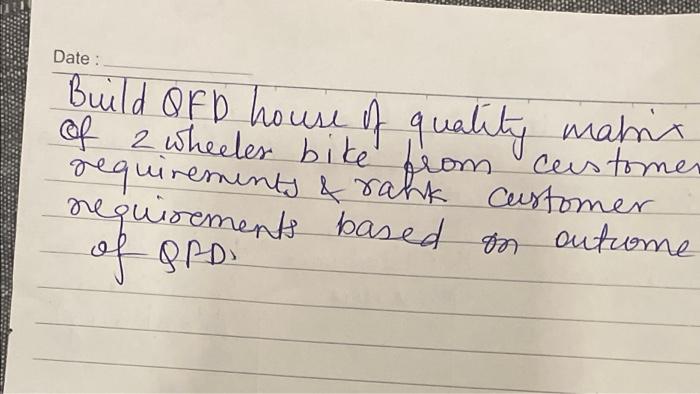 Date :
Build QFD house of quality matrix
of 2 wheeler bike from customer
requirements & rank customer
requirements based on outcome
of QFD.